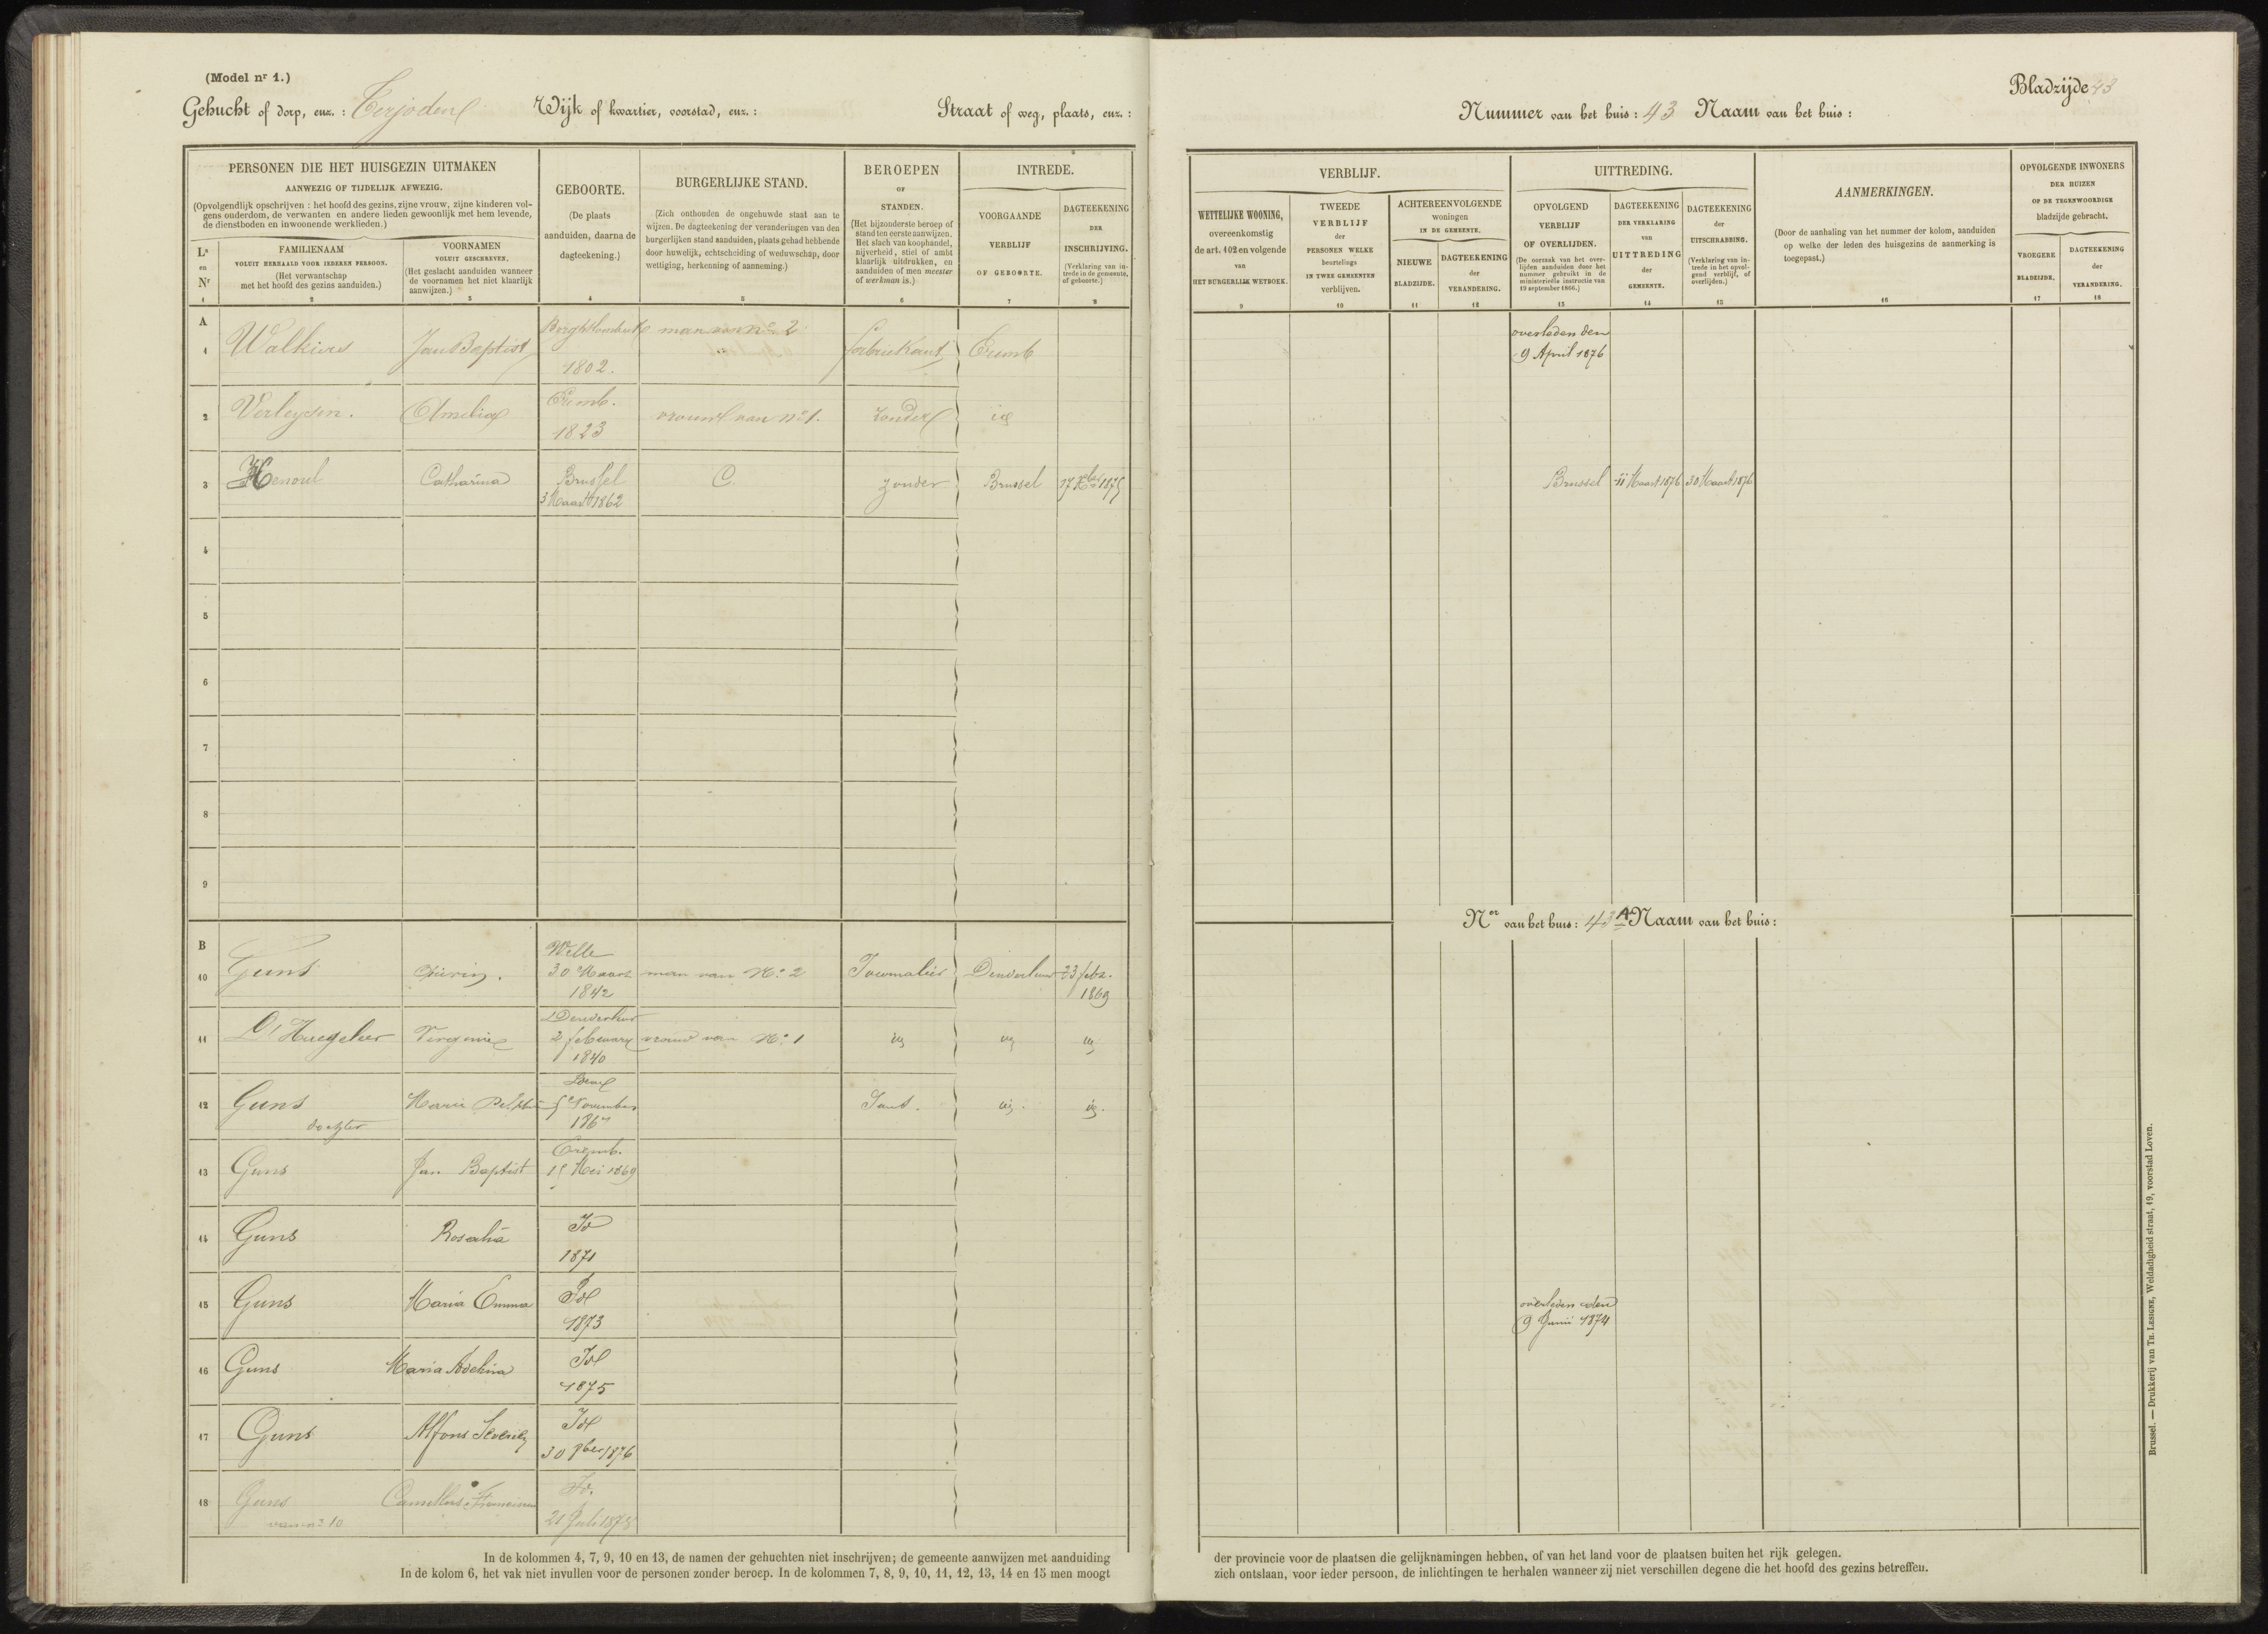 (Model nr 1.)
Gehucht of dorp, enz. : Terjoden Wijk of kwartier, voorstad, enz. : Straat of weg, plaats, enz. :
Nummer van het huis : 43 Naam van het huis :
Bladzijde 43
PERSONEN DIE HET HUISGEZIN UITMAKEN
AANWEZIG OF TIJDELIJK AFWEZIG.
(Opvolgendlijk opschrijven : het hoofd des gezins, zijne vrouw, zijne kinderen vol-
gens ouderdom, de verwanten en andere lieden gewoonlijk met hem levende,
de dienstboden en inwoonende werklieden.)
La
en
Nr
1
FAMILIENAAM
VOLUIT HERHAALD VOOR IEDEREN PERSOON.
(Het verwantschap
met het hoofd des gezins aanduiden.)
2
VOORNAMEN
VOLUIT GESCHREVEN.
(Het geslacht aanduiden wanneer
de voornamen het niet klaarlijk
aanwijzen.)
3
GEBOORTE.
(De plaats
aanduiden, daarna de
dagteekening.)
4
BURGERLIJKE STAND.
(Zich onthouden de ongehuwde staat aan te
wijzen. De dagteekening der veranderingen van den
burgerlijken stand aanduiden, plaats gehad hebbende
door huwelijk, echtscheiding of weduwschap, door
wettiging, herkenning of aanneming.)
5
BEROEPEN
OF
STANDEN.
(Het bijzonderste beroep of
stand ten eerste aanwijzen.
Het slach van koophandel,
nijverheid, stiel of ambt
klaarlijk uitdrukken, en
aanduiden of men meester
of werkman is.)
6
INTREDE.
VOORGAANDE
VERBLIJF
OF GEBOORTE.
7
DAGTEEKENING
DER
INSCHRIJVING.
(Verklaring van in-
trede in de gemeente,
of geboorte.)
8
VERBLIJF.
WETTELIJKE WOONING,
overeenkomstig
de art. 102 en volgende
van
HET BURGERLIJK WETBOEK.
9
TWEEDE
VERBLIJF
der
PERSONEN WELKE
beurtelings
IN TWEE GEMEENTEN
verblijven.
10
ACHTEREENVOLGENDE
woningen
IN DE GEMEENTE.
NIEUWE
BLADZIJDE.
11
DAGTEEKENING
der
VERANDERING.
12
UITTREDING.
OPVOLGEND
VERBLIJF
OF OVERLIJDEN.
(De oorzaak van het over-
lijden aanduiden door het
nummer gebruikt in de
ministeriële instructie van
19 september 1866.)
13
DAGTEEKENING
DER VERKLARING
van
UITTREDING
der
GEMEENTE.
14
DAGTEEKENING
der
UITSCHRABBING.
(Verklaring van in-
trede in het opvol-
gend verblijf, of
overlijden.)
15
AANMERKINGEN.
(Door de aanhaling van het nummer der kolom, aanduiden
op welke der leden des huisgezins de aanmerking is
toegepast.)
16
OPVOLGENDE INWONERS
DER HUIZEN
OP DE TEGENWOORDIGE
bladzijde gebracht.
VROEGERE
BLADZIJDE.
17
DAGTEEKENING
der
VERANDERING.
18
A
1 Walkiers Jan Baptist 1802. man van no 2 fabriekant Eremb overleden den
9 April 1876
2 Verleysen. Amelia Eremb.
1823 vrouw van no 1. zonder id
3 Henoul Catharina Brussel
3 Maart 1862 C. zonder Brussel 17 Xber 1875 Brussel 11 Maart 1876 30 Maart 1876
4
5
6
7
8
9
Ner van het huis : 43 A Naam van het huis :
B
10 Guns Welle
30 Maart
1842 man van No. 2 Denderleeuw 23 febr.
1869
11 D'Huegeleer Virginie
2 february
1840 vrouw van No. 1 id id id
12 Guns
dochter
5 November
186 id. id.
13 Guns Jan Baptist Eremb.
15 Mei 1869
14 Guns Rosalia Id
1871
15 Guns Maria Emma Id
1873 overleden den
9 Junii 1874
16 Guns Id
1875
17 Guns Alfons Id
30 8ber 1876
18 Guns
van no 10 Camillus Franciscus Id.
21 Juli 1878
In de kolommen 4, 7, 9, 10 en 13, de namen der gehuchten niet inschrijven; de gemeente aanwijzen met aanduiding
In de kolom 6, het vak niet invullen voor de personen zonder beroep. In de kolommen 7, 8, 9, 10, 11, 12, 13, 14 en 15 men moogt
der provincie voor de plaatsen die gelijknamingen hebben, of van het land voor de plaatsen buiten het rijk gelegen.
zich ontslaan, voor ieder persoon, de inlichtingen te herhalen wanneer zij niet verschillen degene die het hoofd des gezins betreffen.
Brussel. — Drukkerij van Th. Lesigne, Weldadigheid straat, 19, voorstad Loven.